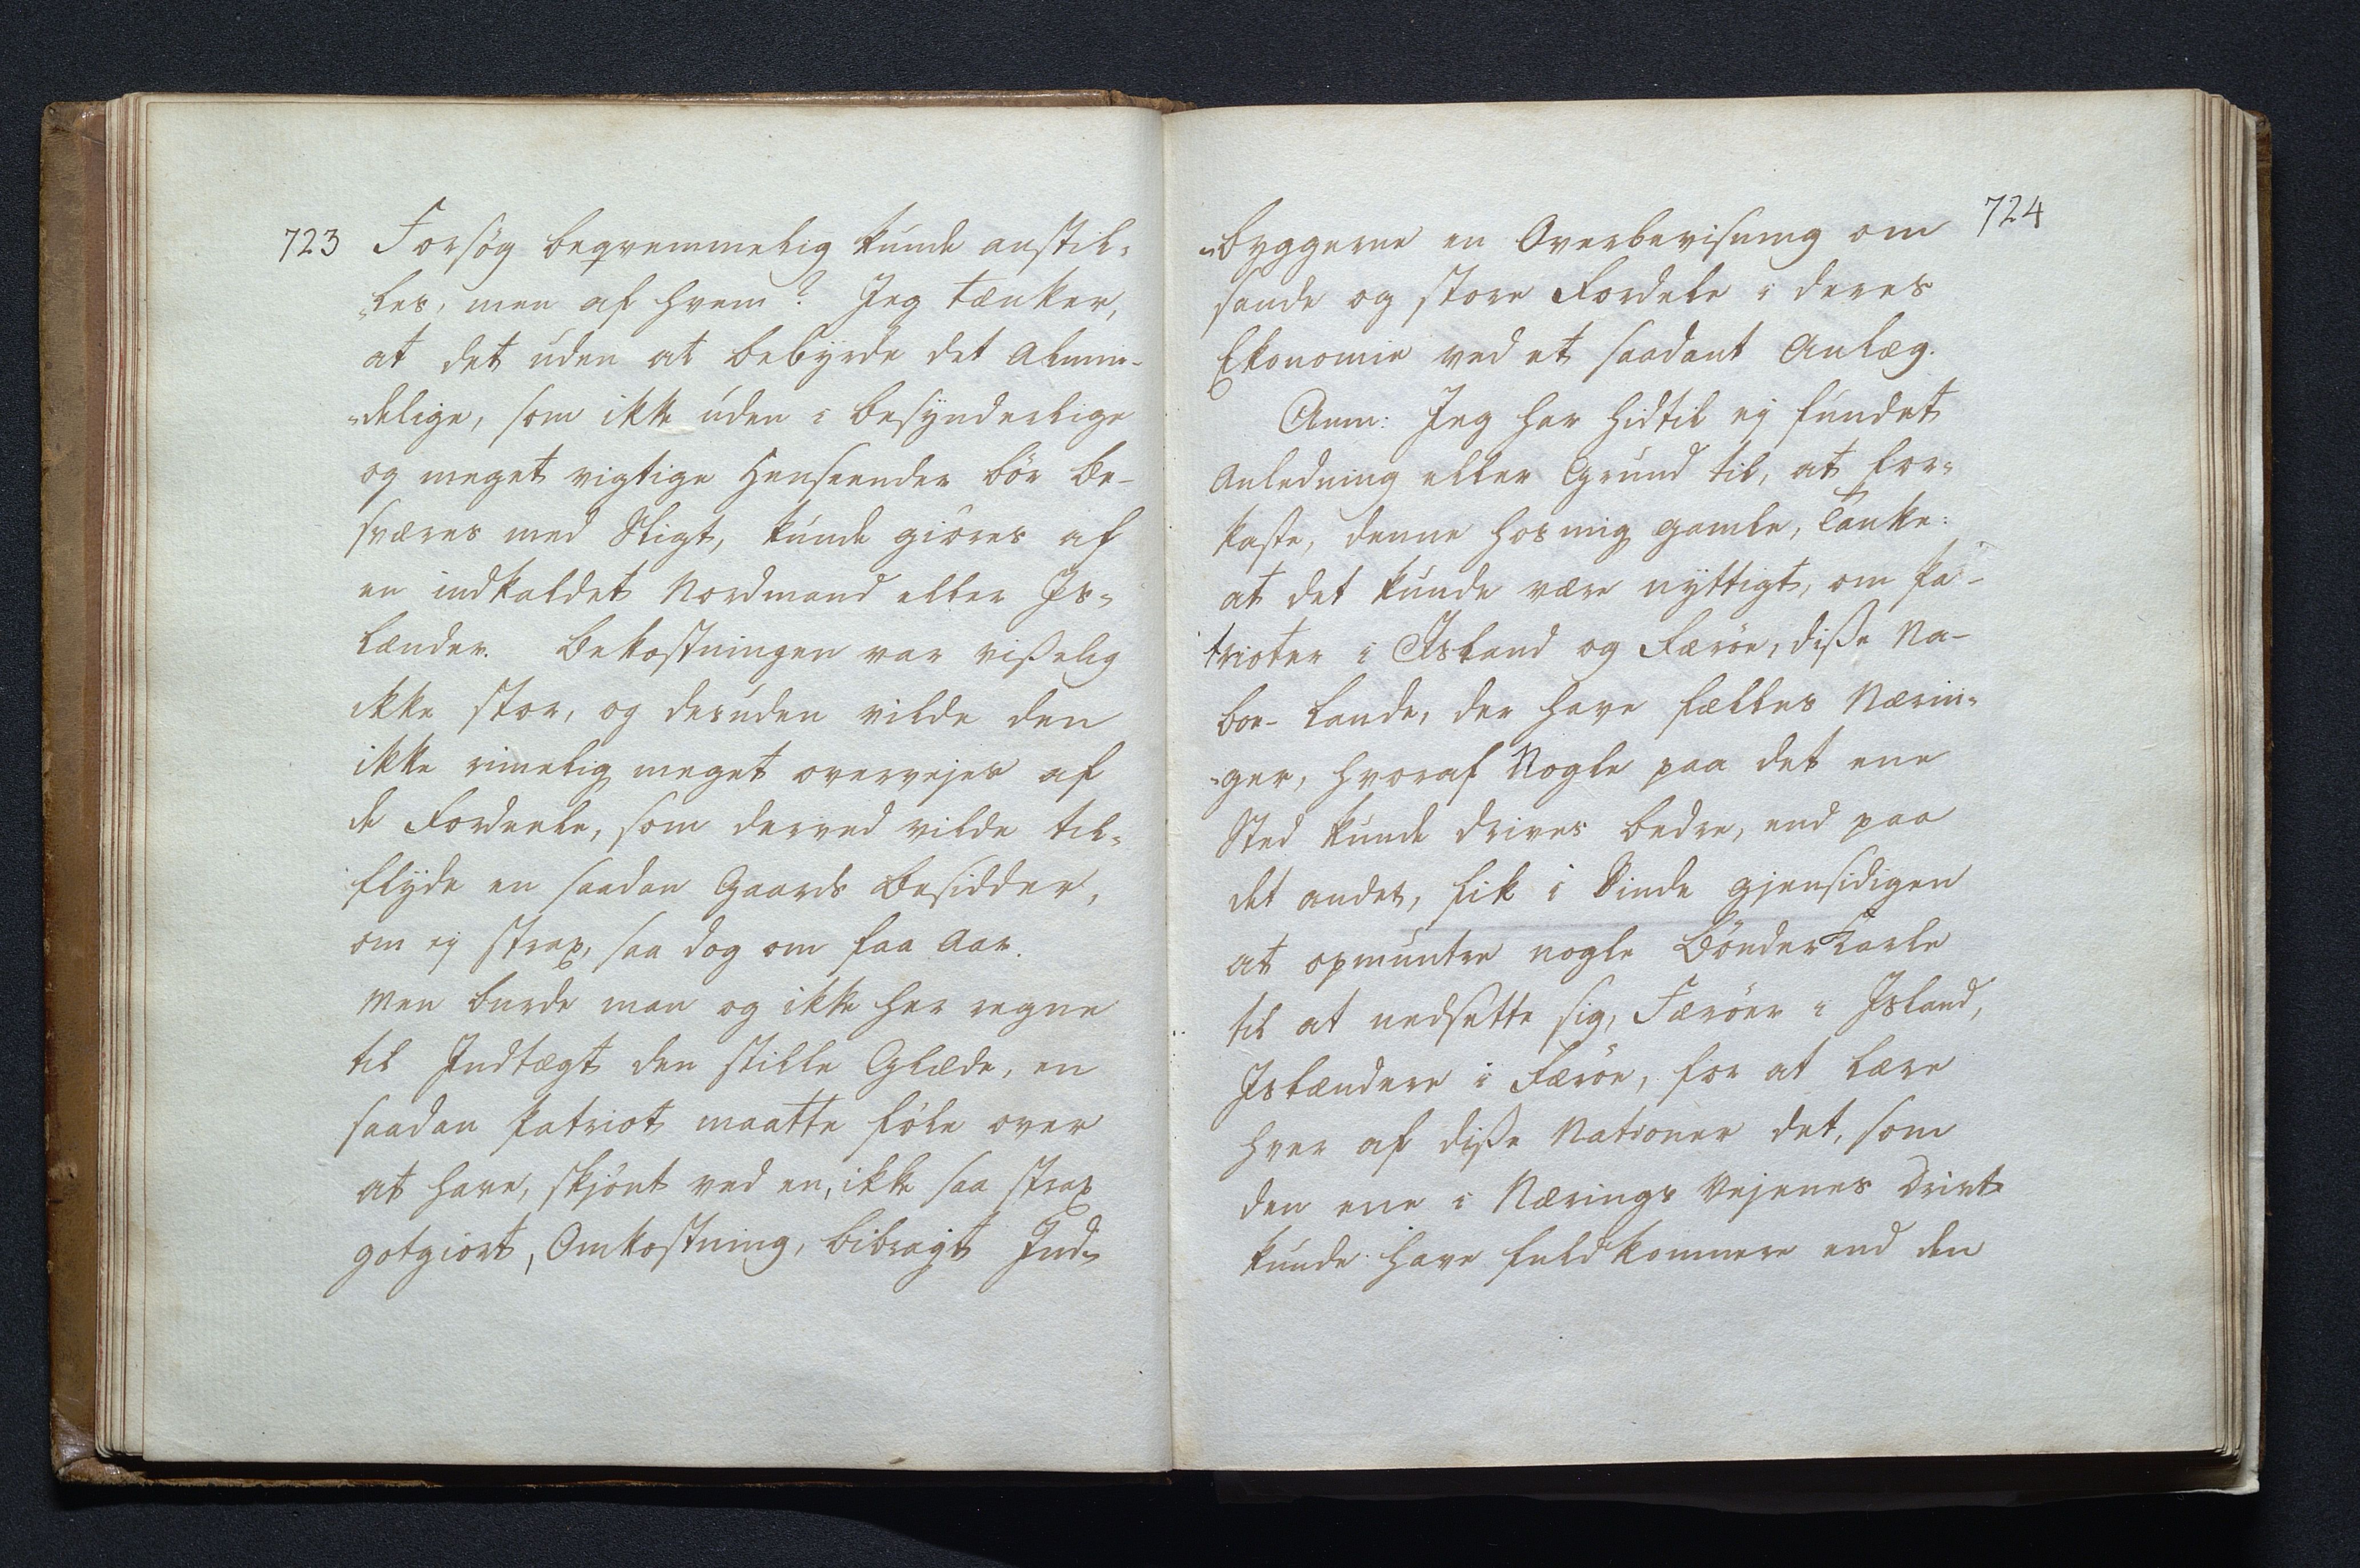 723 Forsøg beqvemmelig kunde anstil-
-les, men af hvem? Jeg tænker,
at det uden at bebyrde det Almin-
-delige, som ikke uden i besynderlige
og meget vigtige Henseender bör be-
sværes med Sligt, kunde giöres af
en indkaldet Nordmand eller Is-
lænder. Bekostningen var visselig
ikke stor, og desuden vilde den
ikke rimelig meget overvejes af
de Fordeele, som derved vilde til-
flyde en saadan Gaards Besidder,
om ej strax, saa dog om faa Aar.
Men burde man og ikke her regne
til Indtægt den stille Glæde, en
saadan Patriot maatte föle over
at have, skjönt ved en, ikke saa strax
gotgiort, Omkostning, bibragt Ind-
724
-byggerne en Overbeviisning om
sande og store Fordele i deres
Ekonomie ved et saadant Anlæg.
Anm: Jeg har hidtil ej fundet
Anledning eller Grund til, at for-
kaste, denne hos mig gamle, Tanke:
at det kunde være nyttigt, om Pa-
trioter i Island og Færöe, disse Na-
boe-Lande, der have fælles Nærin-
-ger, hvoraf Nogle paa det ene
Sted kunde drives bedre, end paa
det andet, fik i Sinde gjensidigen
at opmuntre nogle Bönder Karle
til at nedsette sig, Færöer i Island,
Islændere i Færöe, for at lære
hver af disse Nationer det, som
den ene i Nærings Vejenes Drivt
kunde have fuldkommere end den